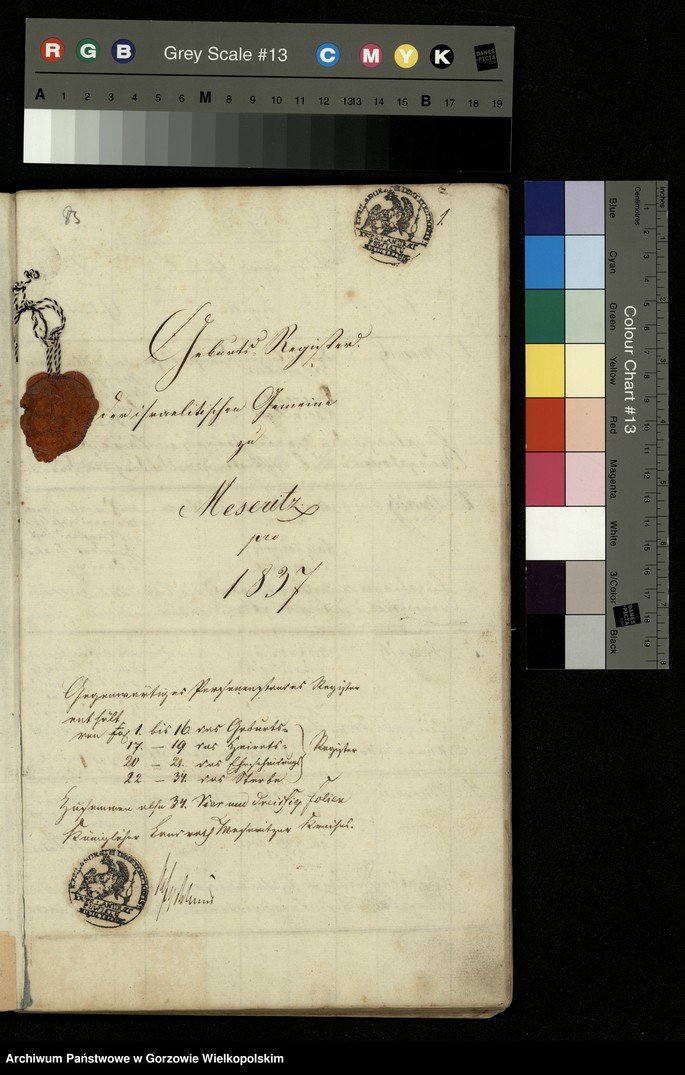 R G B Grey Scale #13 C M Y K DANES-PICTA
A 1 2 3 4 5 6 M 8 9 10 11 12 13 13 14 15 B 17 18 19
83
1.
Geburts-Register
der israelitischen Gemeine
zu
Meseritz
pro
1837
Gegenwärtiges Personenstandes Register
enthält
von Fol. 1. bis 16. das Geburts-
17. — 19. das Heirats-
Register
20 — 21. das Ehescheidungs
22 — 34. das Sterbe
Zusammen also 34. Vier und dreissig Folien
Königlicher Landrath Meseritzer Kreises.
Colour Chart #13
Blue
Cyan
Green
Yellow
Red
Magenta
White
3/Color
Black
Centimetres
Inches
DANES-PICTA
Archiwum Państwowe w Gorzowie Wielkopolskim